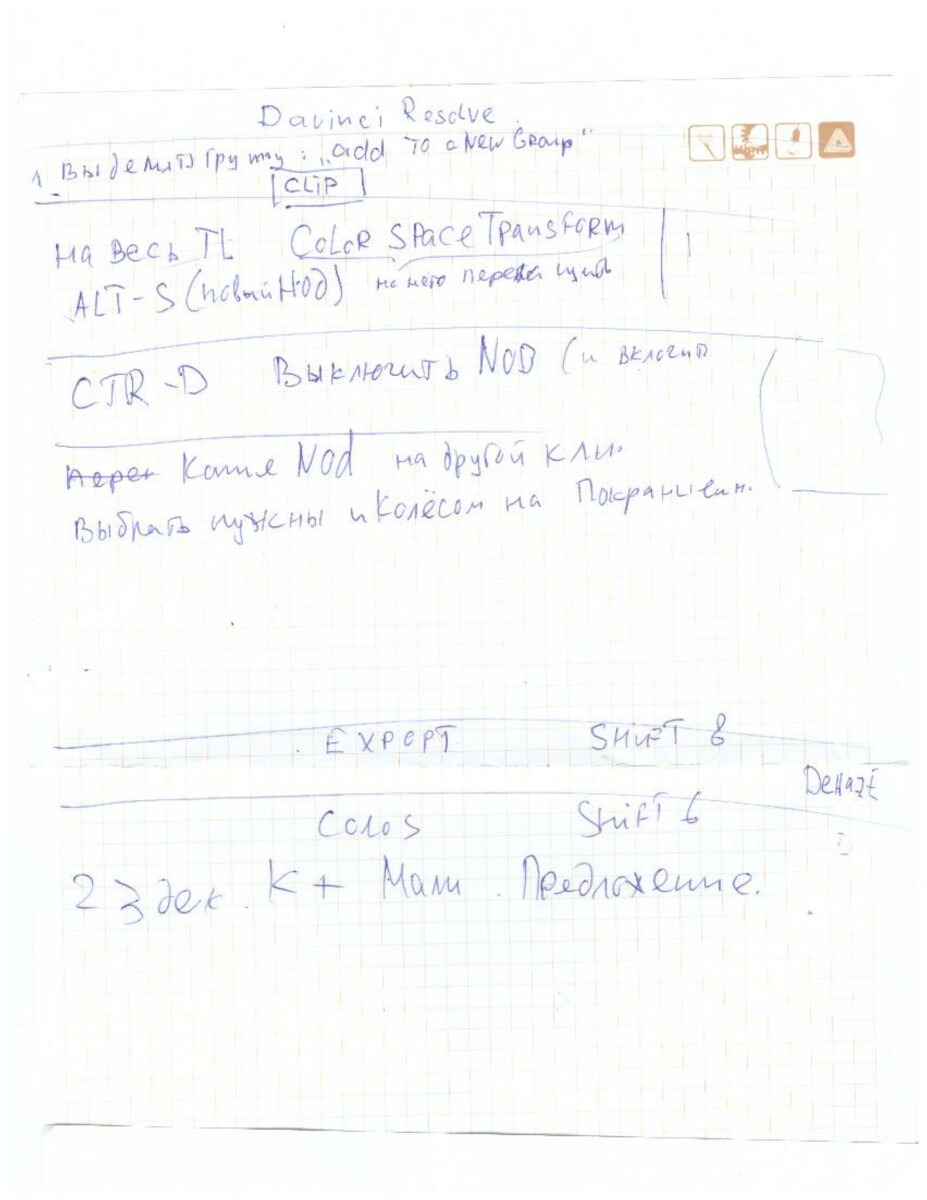 Davinci Resolve
1. Выделить группу: „add To a New Group"
CLIP
На весь TL Color Space Transform
ALT-S (новый НОД) на него перетащить
CTR-D Выключить NOD (и включить
Копия Nod на другой кли.
Выбрать нужны и колёсом на
EXPOPT SHiFT 8
DeHaZE
Colos SHiFT 6
23 дек. К + Мали. Предложение.